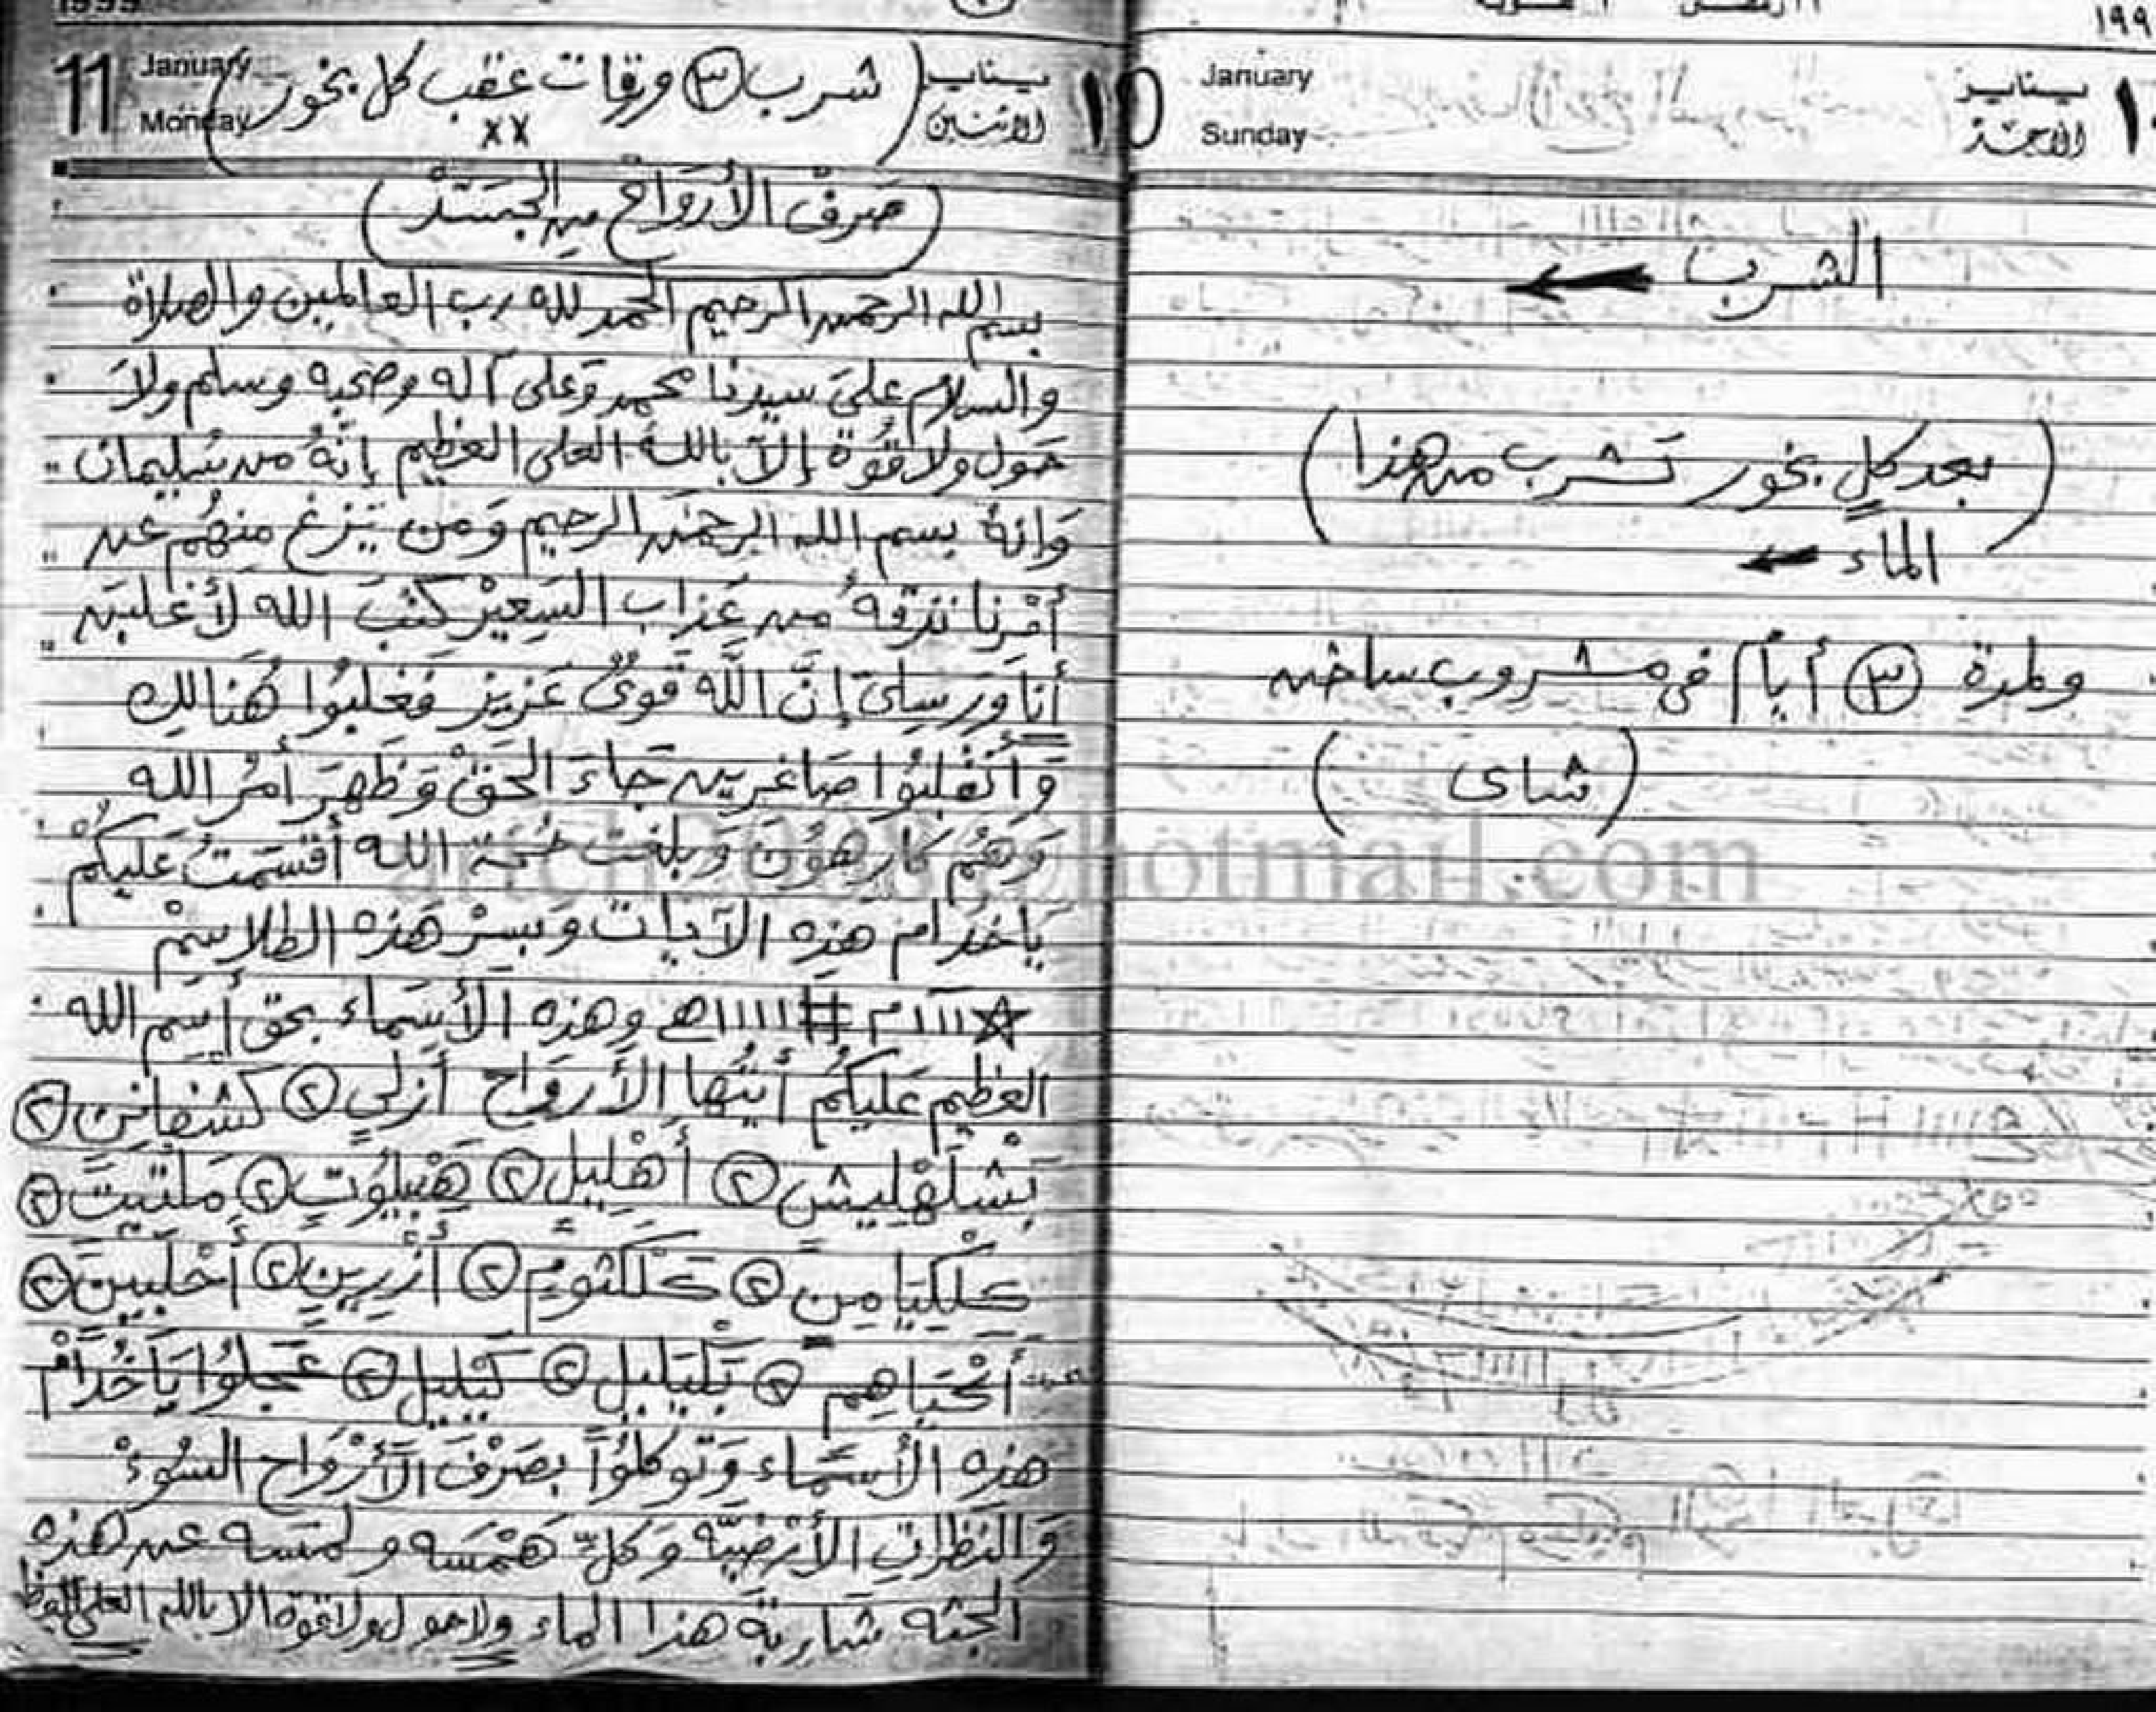 ١٩٩
January
Sunday
يناير
الأحد
10
الشرب
(بعد كل بخور تشرب من هذا)
الماء
ولمدة ٣ أيام في مشروب ساخن
(شاى)
1999
11 January
Monday
يناير
الاثنين
(شرب ٣ ورقات عقب كل بخور)
xx
(صَرفْ الأَروَاح من الجَسَدْ)
بسم الله الرحمن الرحيم الحمد لله رب العالمين والصلاة
والسلام على سيدنا محمد وَعلى آله وصحبه وسلم ولا
حَول ولا قُوة إلا بالله العلى العظيم إنَّهُ من سُليمان
وَانهُ بسم الله الرحمن الرحيم وَمن يَزغ مِنهُم عن
أَمْرنا نذقهُ من عَذاب السَعِيرْ كتبَ الله لأَغلبَن
أَنا وَرسلى إنَّ اللَّه قَوىٌ عَزيز فَغلبُوا هُنالك
وَأنقلبُوا صَاغرين جَاءَ الحَقْ وَظَهرَ أمرُ الله
وَهُم كارهوُن وَبلغت حُجَة الله أقسَمتُ عَليكُم
يَا خدَام هَذِه الآيات وَبسِرْ هَذه الطلاسِمْ
وهذه الأسَماء بحق أسِم الله
العظيم عَليكُم أَيتُها الأَروَاح أَزلي ٢
بَشْلَهْلِيشٍ ٢ أَهْلِيلٍ ٢
عَجلوُا يَا خُدَّامْ
هَذه الأسَماء وَتوكلوُا بصَرْفَ الأَرْوَاح السُوءْ
وَالنَظراتِ الأَرْضِيّه وَكلّ هَمْسَه ولمسَه عن هَذه
الجثه شَاربة هذا الماء ولا حول ولا قوة الا بالله العلى العظيم
arch2008@hotmail.com